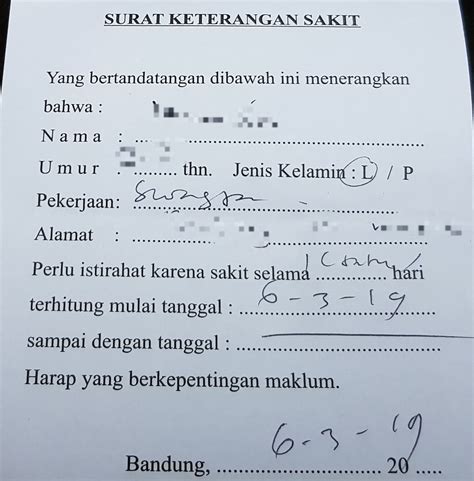 SURAT KETERANGAN SAKIT
Yang bertandatangan dibawah ini menerangkan
bahwa :
Nama : ............................................
Umur : ............ thn. Jenis Kelamin : L / P
Pekerjaan: Swasta
Alamat : ............................................
Perlu istirahat karena sakit selama 1 (satu) hari
terhitung mulai tanggal : 6-3-19
sampai dengan tanggal : ............................
Harap yang berkepentingan maklum.
Bandung, 6-3-19 20 .....